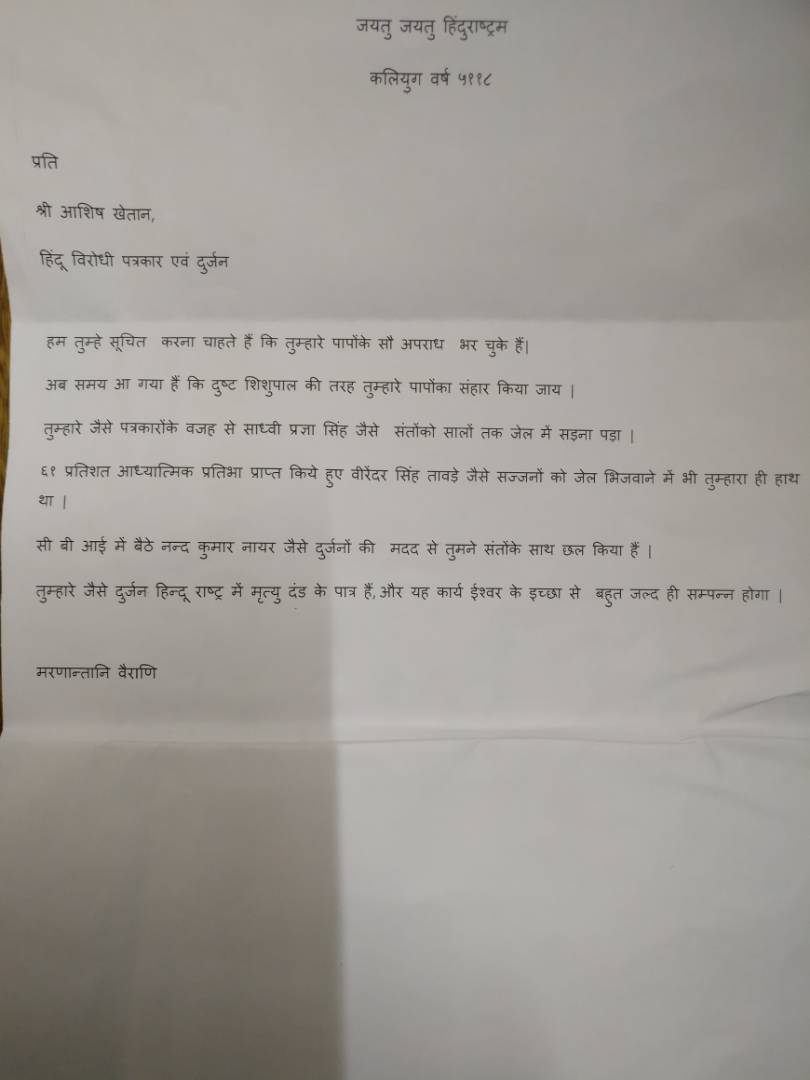 जयतु जयतु हिंदुराष्ट्रम
कलियुग वर्ष ५११८
प्रति
श्री आशिष खेतान,
हिंदू विरोधी पत्रकार एवं दुर्जन
हम तुम्हे सूचित करना चाहते हैं कि तुम्हारे पापोंके सौ अपराध भर चुके हैं|
अब समय आ गया हैं कि दुष्ट शिशुपाल की तरह तुम्हारे पापोंका संहार किया जाय |
तुम्हारे जैसे पत्रकारोंके वजह से साध्वी प्रज्ञा सिंह जैसे संतोंको सालों तक जेल में सड़ना पड़ा |
६१ प्रतिशत आध्यात्मिक प्रतिभा प्राप्त किये हुए वीरेंदर सिंह तावड़े जैसे सज्जनों को जेल भिजवाने में भी तुम्हारा ही हाथ
था |
सी बी आई में बैठे नन्द कुमार नायर जैसे दुर्जनों की मदद से तुमने संतोंके साथ छल किया हैं |
तुम्हारे जैसे दुर्जन हिन्दू राष्ट्र में मृत्यु दंड के पात्र हैं,और यह कार्य ईश्वर के इच्छा से बहुत जल्द ही सम्पन्न होगा |
मरणान्तानि वैराणि